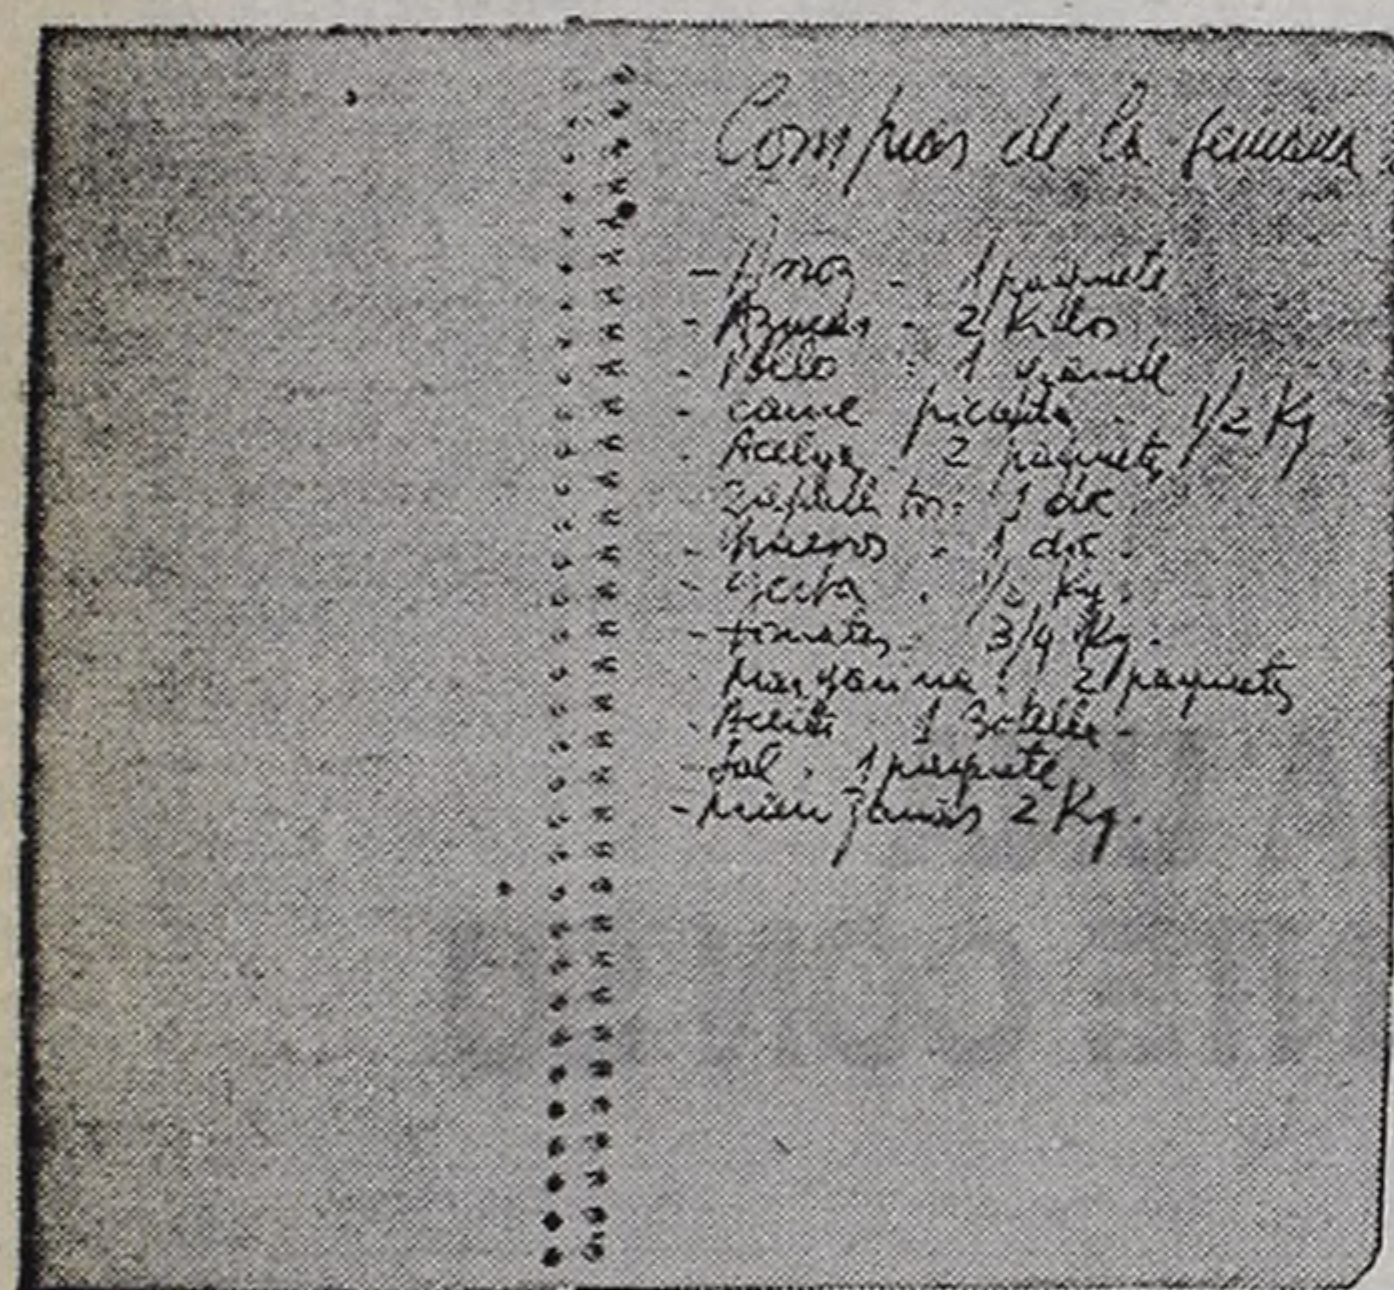 Compras de la semana
- Arroz - 1 paquete
- Azucar - 2 Kilos
- Pollo - 1 grande
- carne picada - 1/2 Kg
- Acelga - 2 paquetes
zapallitos - 1 doc.
- huevos - 1 doc.
- 1/2 Kg.
- tomates - 3/4 Kg.
- Margarina - 2 paquetes
- Aceite 1 Botella -
- Sal - 1 paquete
- manzanas 2 Kg.